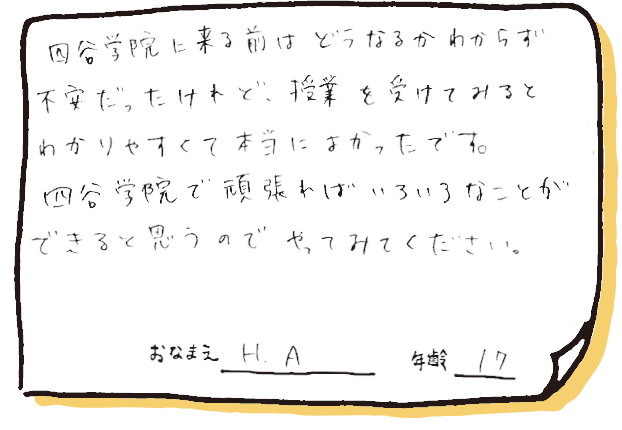 四谷学院に来る前はどうなるかわからず
不安だったけれど、授業を受けてみると
わかりやすくて本当によかったです。
四谷学院で頑張ればいろいろなことが
できると思うのでやってみてください。
おなまえ H.A 年齢 17